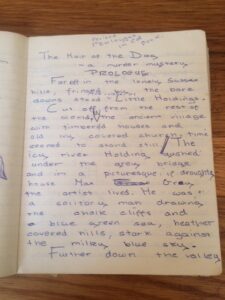 The Hair of the Dog
- a murder mystery
PROLOGUE
Far off in the lonely Sussex
hills, fringed by the bare
downs stood Little Holdings.
Cut off from the rest of
the world, the ancient village
with timbered houses and
old ivy covered church, time
seemed to stand still. The
icy river Holding gushed
under the grey bridge
and in a picturesque if draughty
house Max Grey,
the artist lived. He was
a solitary man drawing
the chalk cliffs and
blue green sea, heather
covered hills, stark against
the milky blue sky.
Further down the valley